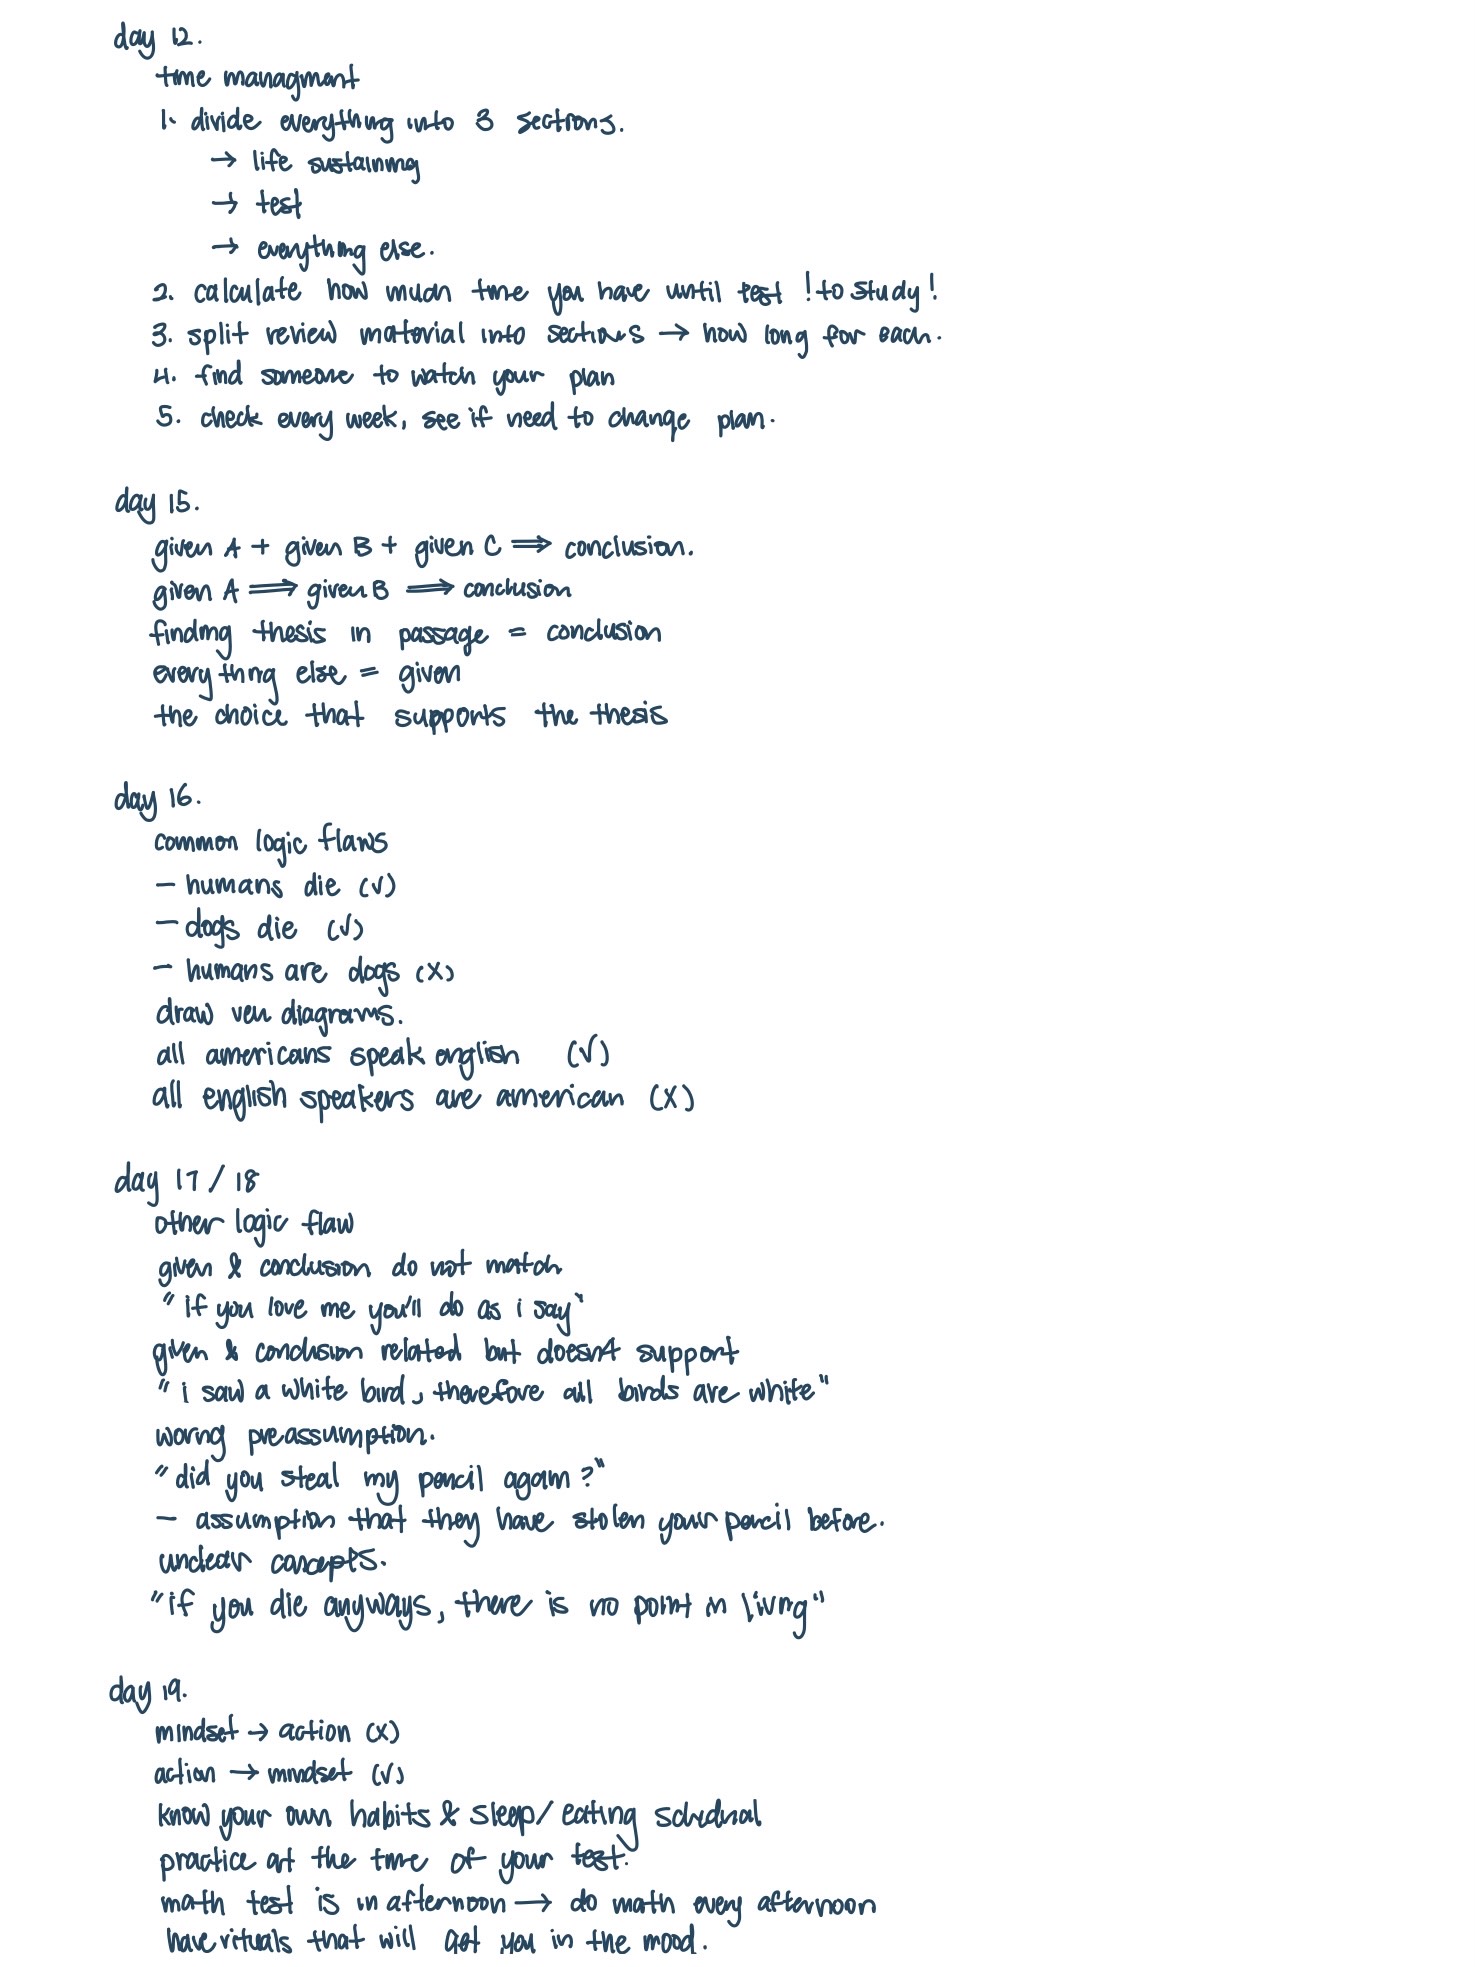 day 12.
time managment
1. divide everything into 3 sections.
→ life sustaining
→ test
→ everything else.
2. calculate how much time you have until test ! to study !
3. split review material into sections → how long for each.
4. find someone to watch your plan
5. check every week, see if need to change plan.
day 15.
given A + given B + given C ⟹ conclusion.
given A ⟹ given B ⟹ conclusion
finding thesis in passage = conclusion
everything else = given
the choice that supports the thesis
day 16.
common logic flaws
- humans die (√)
- dogs die (√)
- humans are dogs (x)
draw ven diagrams.
all americans speak english (√)
all english speakers are american (x)
day 17 / 18
other logic flaw
given & conclusion do not match
"if you love me you'll do as i say"
given & conclusion related but doesn't support
"i saw a white bird, therefore all birds are white"
worng preassumption.
"did you steal my pencil again?"
- assumption that they have stolen your pencil before.
unclear concepts.
"if you die anyways, there is no point in living"
day 19.
mindset → action (x)
action → mindset (√)
know your own habits & sleep/eating schedual
practice at the time of your test.
math test is in afternoon → do math every afternoon
have rituals that will get you in the mood.